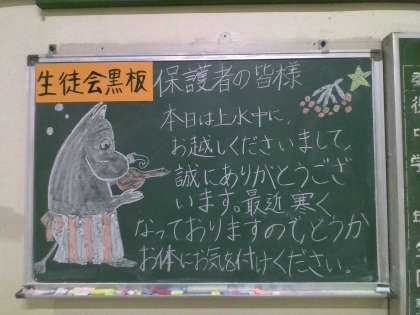 生徒会黒板
保護者の皆様
本日は上水中に、
お越しくださいまして、
誠にありがとうござ
います。最近寒く
なっておりますのでどうか
お体にお気を付けください。